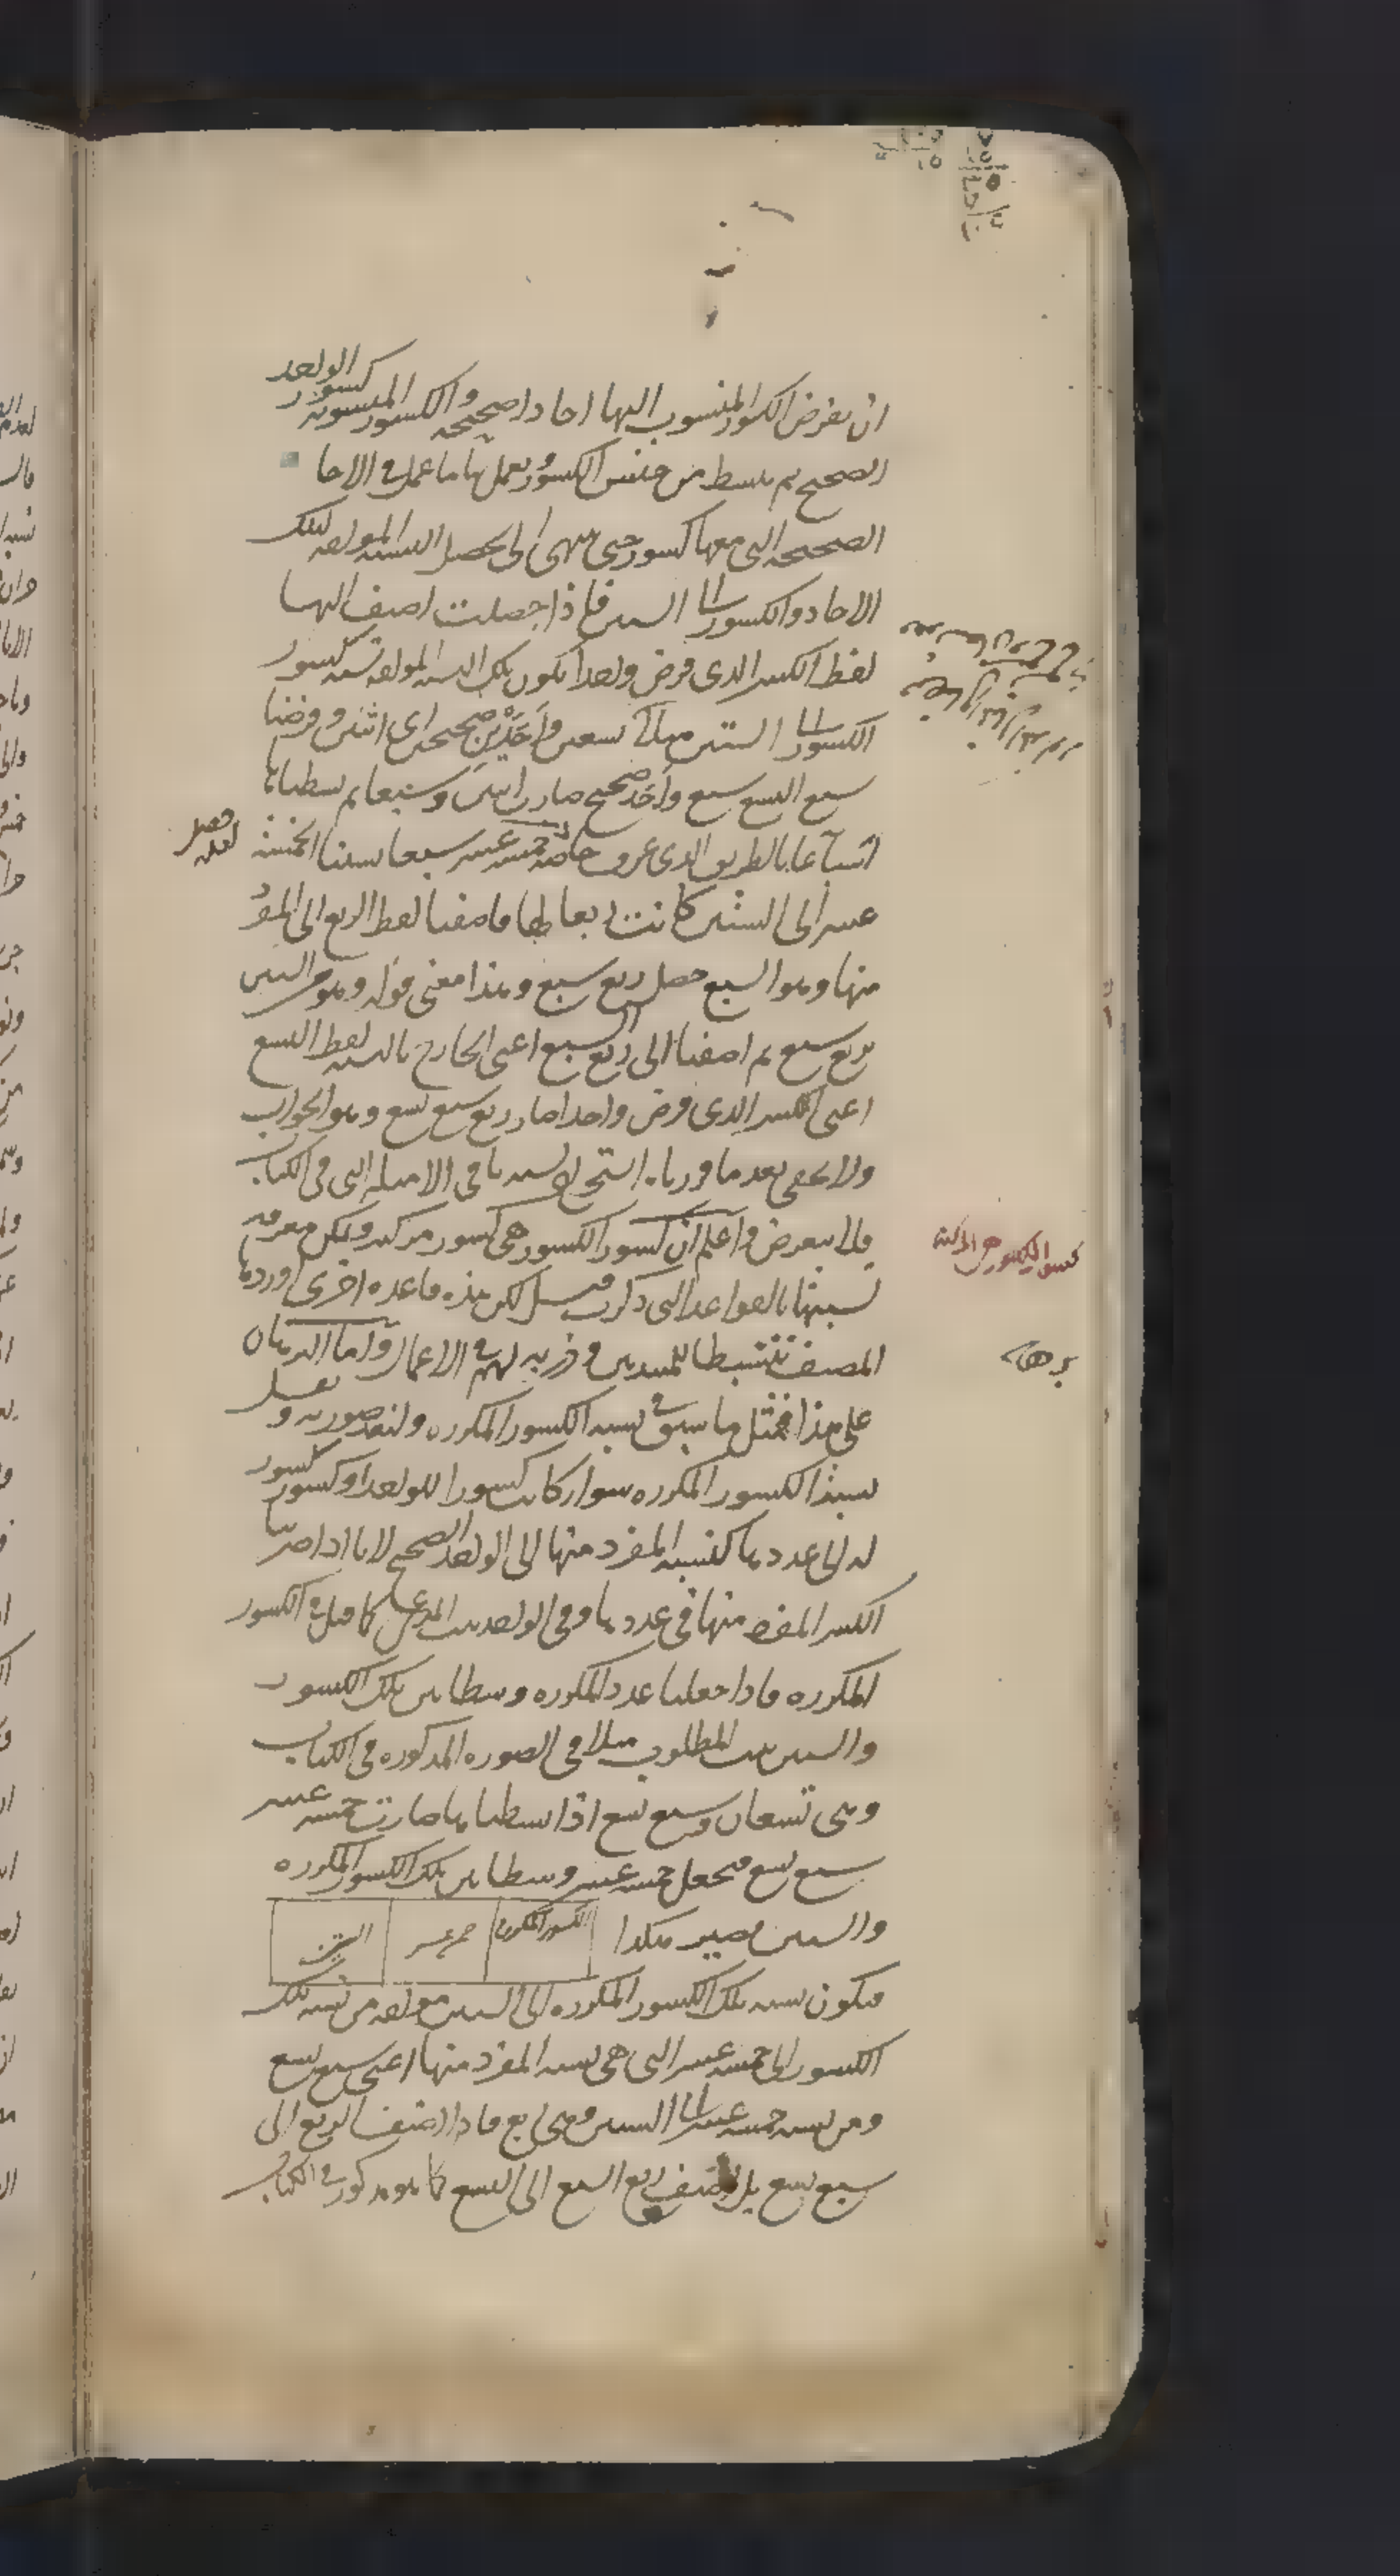 ان يفرض الكسور المنسوب اليها احادا صحيحه والكسور المنسوبه كسور الواحد
الصحيح ثم يبسط من جنس الكسور ويعمل بها ما عمل في الاحا
الصحيحه التي معها كسور حتى ينتهي الى تحصيل النسبه المولفه لتلك
الاحاد والكسور الى الستين فاذا حصلت اضيف اليها
لفظ الكسر الذي فرض واحدا يكون تلك النسبه المولفه نسبه كسور
الكسور الى الستين مثلا تسعين واحدين صحيحين اى اثنين وفرضنا
سبع التسع سبع واحد صحيح صارت اثنين وسبعا ثم بسطناها
اسباعا بالطريق الذي عرف حاصله خمسه عشر سبعا نسبنا الخمسه
عشر الى الستين كانت ربعا لها فاضفنا لفظ الربع الى المفرد
منها وهو السبع حصل ربع سبع وهذا معنى قوله وهو من الستين
ربع سبع ثم اضفنا الى ربع السبع اعنى الخارج بالنسبه لفظ التسع
اعنى الكسر الذي فرض واحدا صار ربع سبع تسع وهو الجواب
ولا يخفى بعد ما قررنا استخراج نسبه باقي الامثله التي في الكتاب
فلا نتعرض واعلم ان كسور الكسور هي كسور مركبه ويمكن معرفه
نسبتها بالقواعد التي ذكرت قبل لكن هذه قاعده اخرى اوردها
المصنف تنشيطا للمبتدئين ودربه لهم في الاعمال واما البرهان
على هذا فمثل ما سبق في نسبه الكسور المكرره ولنعد صورته ونقل
نسبة الكسور المكرره سواء كانت كسورا للواحد او كسور كسور
له الى عددها كنسبه المفرد منها الى الواحد الصحيح لانا اذا ضربنا
الكسر المفرد منها في عددها وفي الواحد يثبت المدعى كما قيل في الكسور
المكرره فاذا جعلنا عدد المكرره وسطا بين تلك الكسور
والستين يثبت المطلوب مثلا في الصوره المذكوره في الكتاب
وهي تسعان وسبع تسع اذا بسطناها صارت خمسه عشر
سبع تسع فنجعل خمسه عشر وسطا بين تلك الكسور المكرره
والستين فيصير هكذا الكسور المكرره خمسه عشر الستين
فيكون نسبه تلك الكسور المكرره الى الستين مولفه من نسبه تلك
الكسور الى خمسه عشر التي هي نسبه المفرد منها اعنى سبع تسع
ومن نسبه خمسه عشر الى الستين وهي ربع فاذا اضيف الربع الى
سبع تسع بل اضيف ربع السبع الى التسع كما هو مذكور في الكتاب
كسور الكسور هي المركبه
برهان